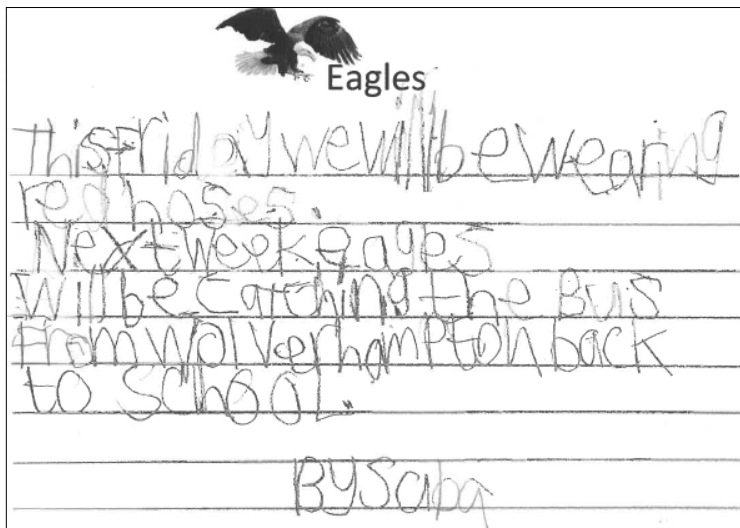 Eagles
This Friday we will be wearing
red noses.
Next week Eagles
Will be catching the Bus
From Wolverhampton back
to SchooL.
By Saba